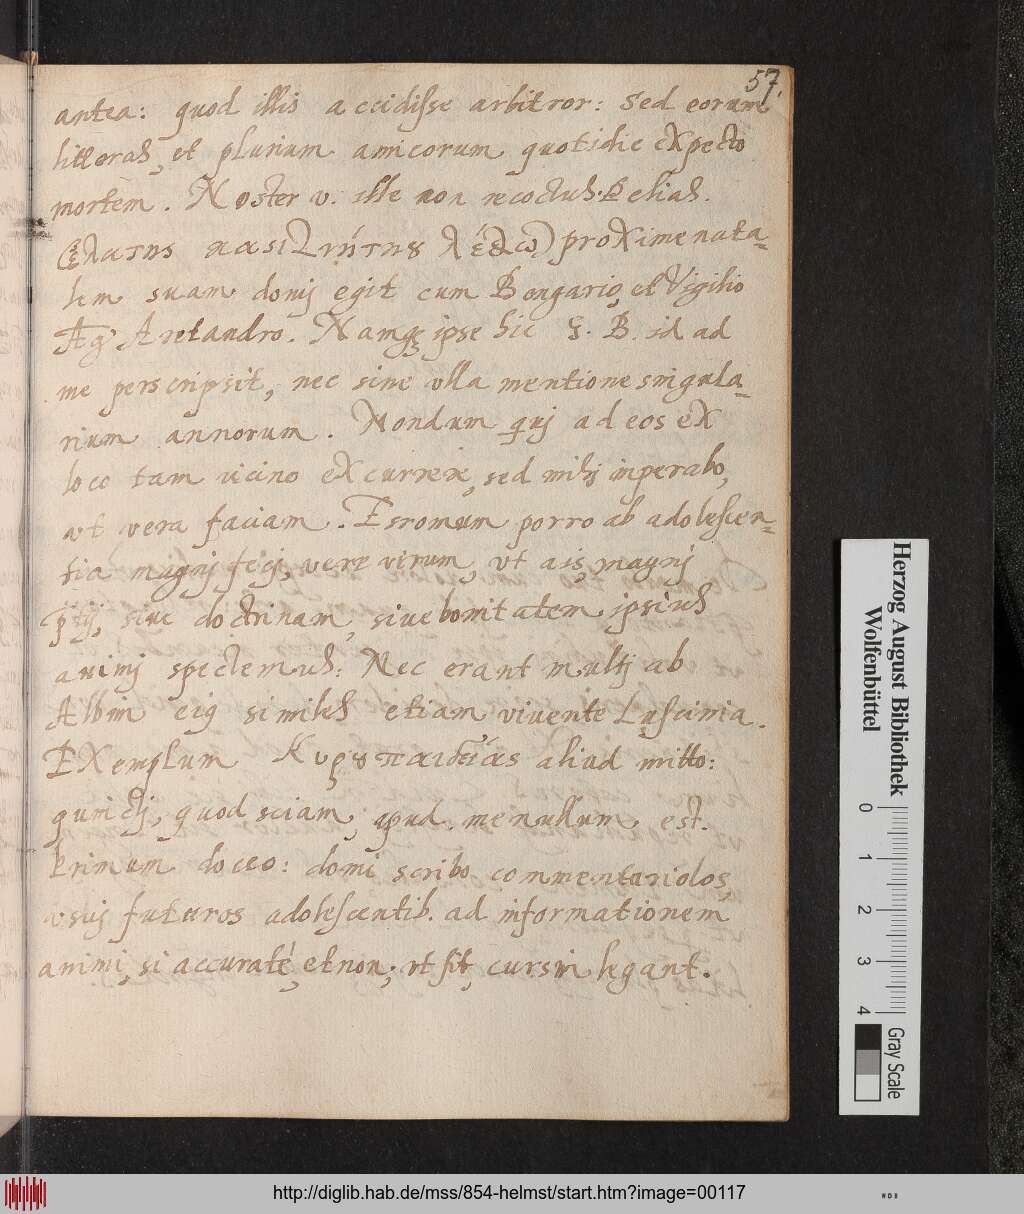 57.
antea: quod illis accidisse arbitror: Sed eorum
litteras, et plurium amicorum quotidie expecto
mortem. Noster v. ille non recoctus Pelias.
λέβω) proxime nata-
lem suam donij egit cum Bongario, et Vigilio
Ag' Aretandro. Namqꝫ ipse hic S. B. id ad
me perscripsit, nec sine ulla mentione singula-
rium annorum. Nondum quj ad eos ex
loco tam vicino excurrere, sed mihj inperabo,
ut vera faciam. Esromum porro ab adolescen-
tia magnj fecj, vere virum, ut ais, magnj
p̄tij, siue doctrinam, siue bonitatem ipsius
animj spectemus: Nec erant multj ab
Albim eiꝰ similes etiam viuente Luscinia.
Exemplum Κυρου παιδείας aliud mitto:
qurictj, quod sciam, apud me nullum est.
Primum doceo: domi scribo commentariolos,
usuj futuros adolescentib. ad informationem
animi, si accuraté, et non, ut fit, cursin legant.
Herzog August Bibliothek
Wolfenbüttel
0 1 2 3 4
Gray Scale
http://diglib.hab.de/mss/854-helmst/start.htm?image=00117